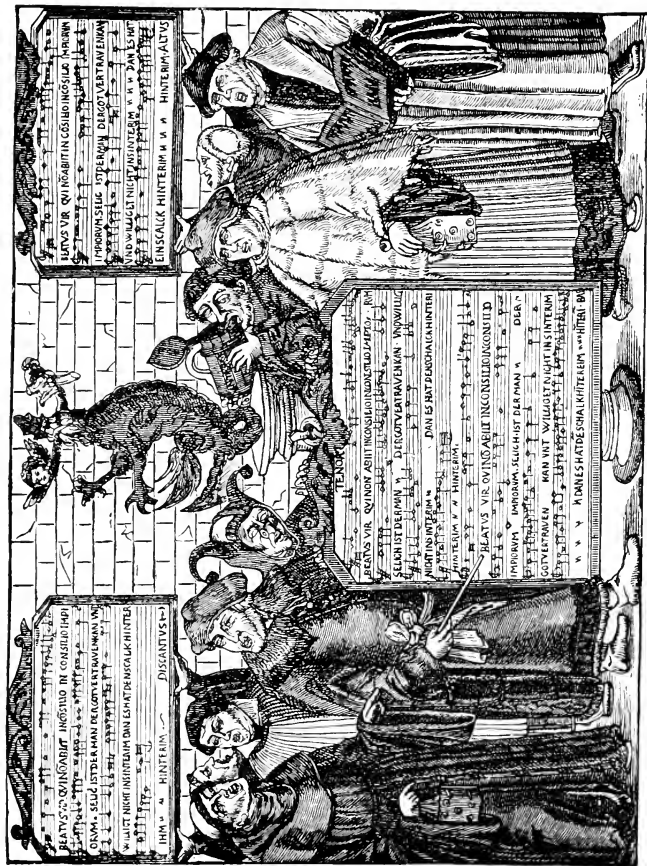 BEATUS VIR QUI NŌ ABIIT IN CŌSILIO IN CONSILIO IMPI
ORVM SELIG IST DER MAN DER GOT VERTRAVEN KAN VN̄
WILLIGT NICHT INS INTERIM DAN ES HAT DEN SCALK HINTER
IHM HINTERIM DISCANTVS
BEATUS VIR QUI NŌ ABIIT IN CŌSILIO IN CONSILO IMPIORUM
IMPIORUM SELIG IST DER MĀN DER GOT VERTRAVEN KAN
VND WILLIGET NICHT INS INTERIM DAN ES HAT
EIN SCALCK HINTERIM HINTERIM ALTVS
TENOR
BEATUS VIR QUI NON ABIIT IN CONSILIO IN CONSILIO IMPIO
SELICH IST DER MAN DER GOT VERTRAVEN KAN VND WILLIG
NICHT INS INTERIM DAN ES HAT DEN SCHALCK HINTERI
HINTERIM HINTERIM
BEATVS VIR QVI NŌ ABIIT IN CONSILIO IN CONSILIO
IMPIORUM IMPIORUM SELICH IST DER MAN DER
GOT VERTRAVEN KAN VNT WILLIGET NICHT INS INTERIM
DAN ES HAT DĒ SCHALK HĪTER EIM HĪTERI BAS